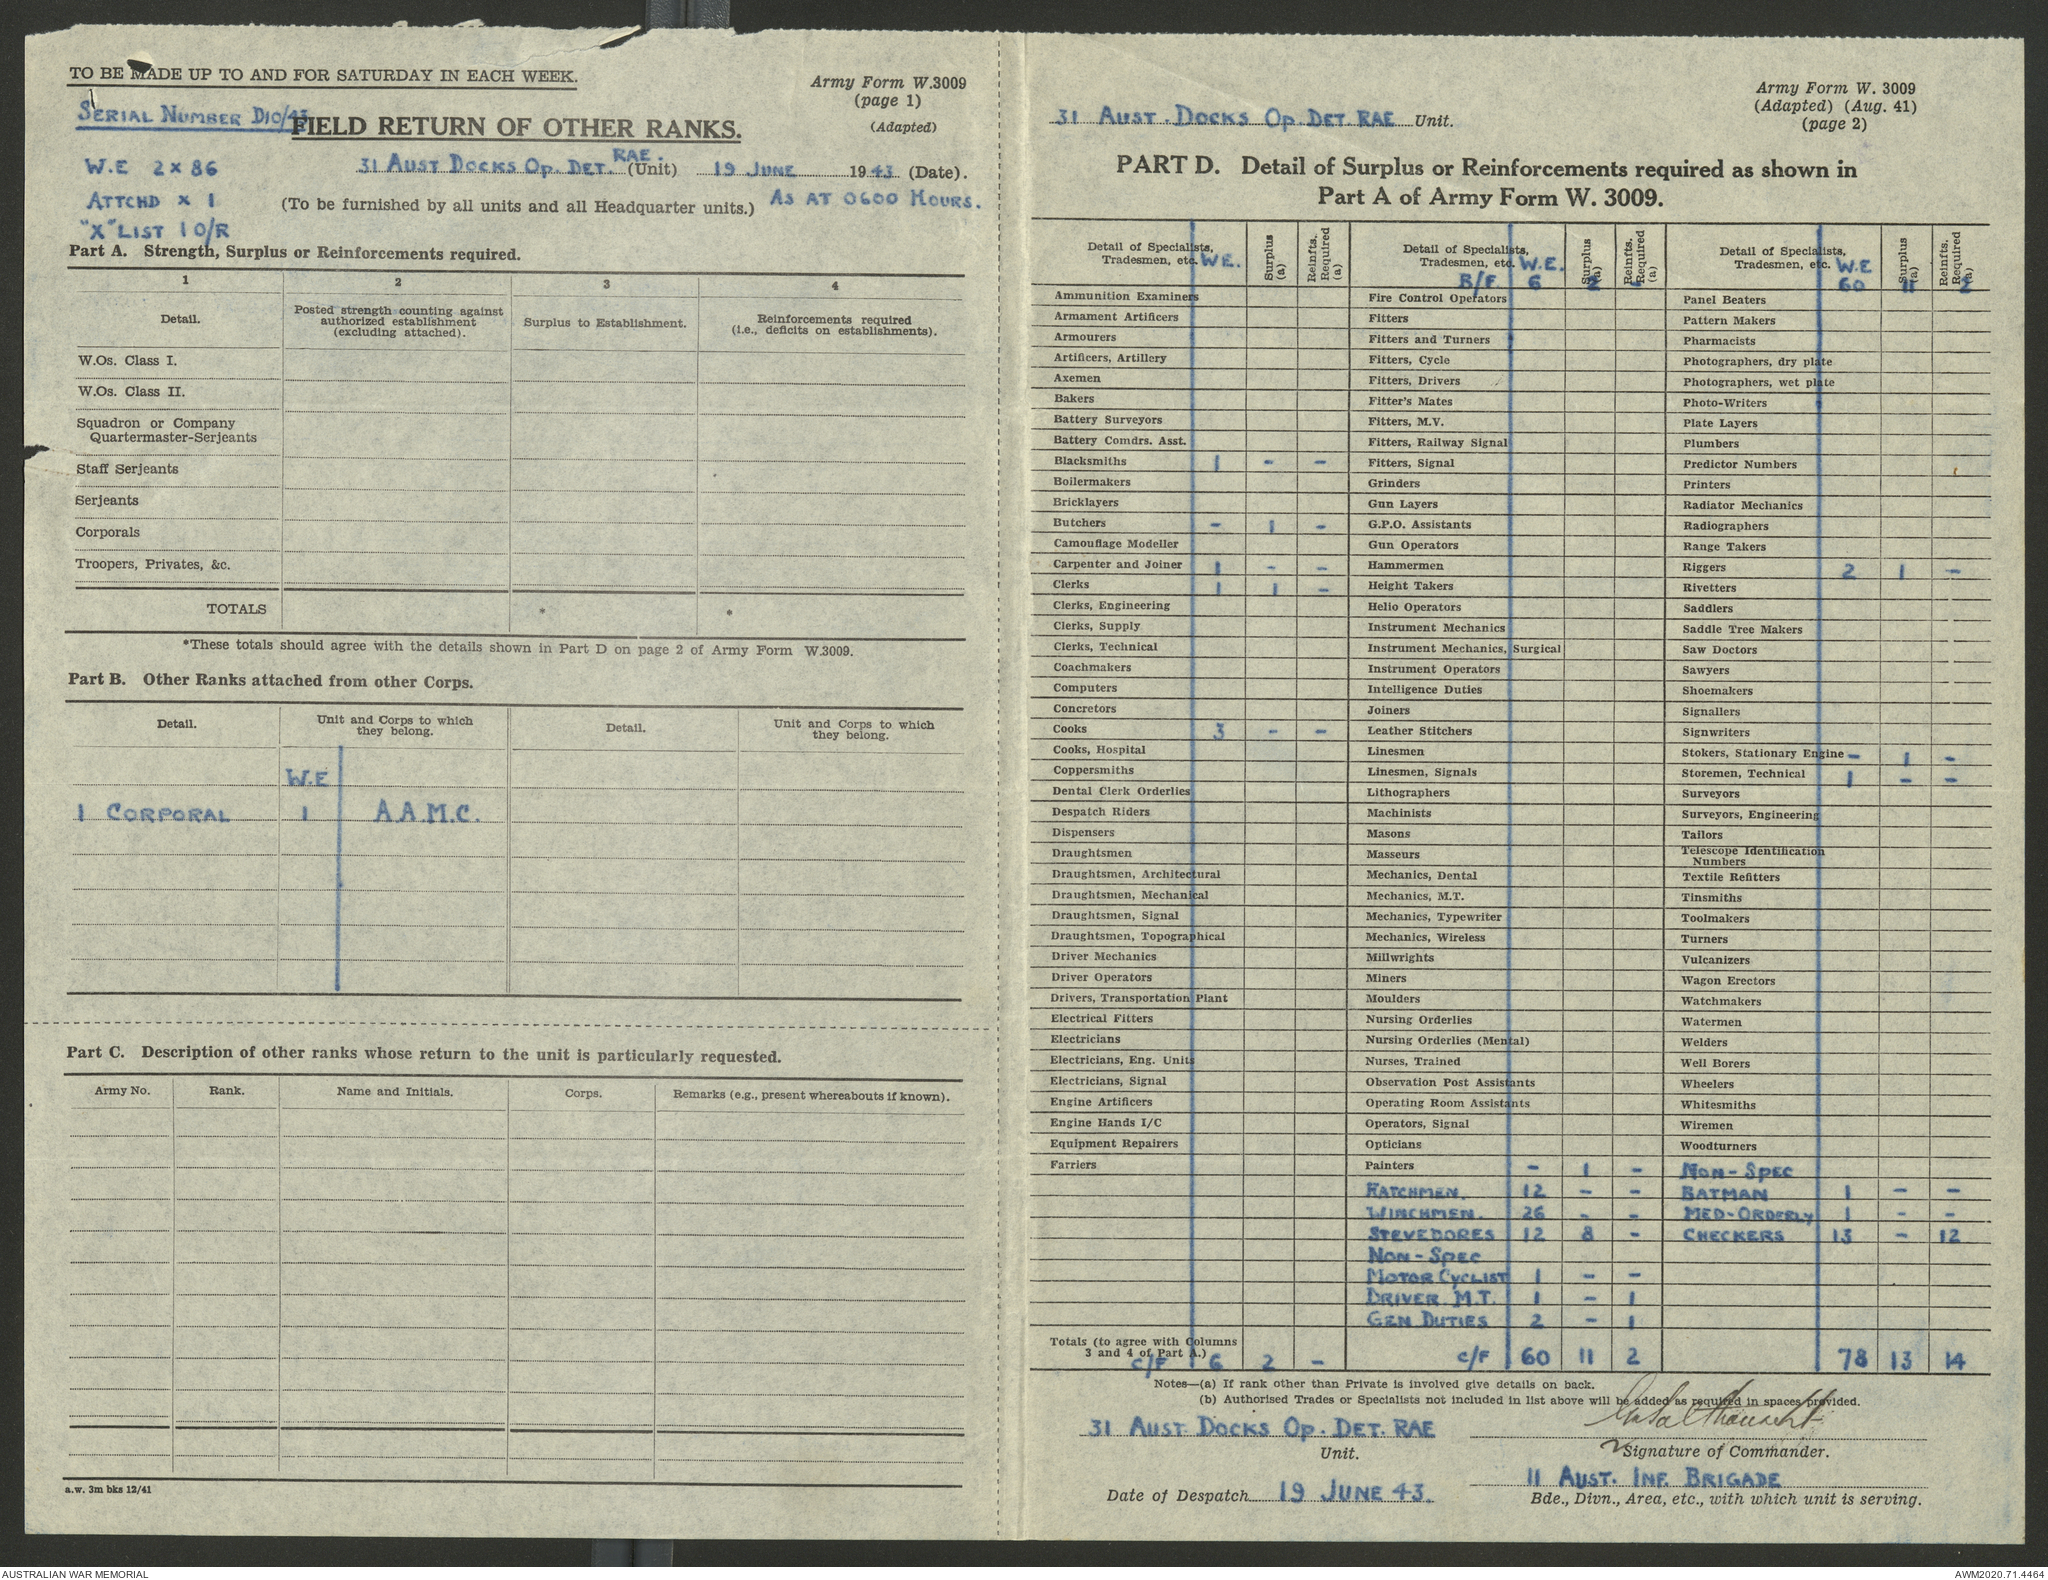 TO BE MADE UP TO AND FOR SATURDAY IN EACH WEEK.
Army Form W.3009
(page 1)
(Adapted)
SERIAL NUMBER D10/43
FIELD RETURN OF OTHER RANKS.
W.E 2 x 86
31 AUST DOCKS OP. DET. RAE. (Unit) 19 JUNE 1943 (Date).
ATTCHD x 1
(To be furnished by all units and all Headquarter units.) AS AT 0600 HOURS.
"X" LIST 1 O/R
Part A. Strength, Surplus or Reinforcements required.
1 2 3 4
Detail.
Posted strength counting against authorized establishment (excluding attached).
Surplus to Establishment.
Reinforcements required (i.e., deficits on establishments).
W.Os. Class I.
W.Os. Class II.
Squadron or Company
Quartermaster-Serjeants
Staff Serjeants
Serjeants
Corporals
Troopers, Privates, &c.
TOTALS * *
*These totals should agree with the details shown in Part D on page 2 of Army Form W.3009.
Part B. Other Ranks attached from other Corps.
Detail. Unit and Corps to which they belong. Detail. Unit and Corps to which they belong.
W.E
1 CORPORAL 1 A.A.M.C.
Part C. Description of other ranks whose return to the unit is particularly requested.
Army No. Rank. Name and Initials. Corps. Remarks (e.g., present whereabouts if known).
a.w. 3m bks 12/41
Army Form W. 3009
(Adapted) (Aug. 41)
(page 2)
31 AUST. DOCKS OP. DET. RAE Unit.
PART D. Detail of Surplus or Reinforcements required as shown in
Part A of Army Form W. 3009.
Detail of Specialists, Tradesmen, etc. W.E. Surplus (a) Reinfts. Required (a)
Ammunition Examiners
Armament Artificers
Armourers
Artificers, Artillery
Axemen
Bakers
Battery Surveyors
Battery Comdrs. Asst.
Blacksmiths 1 - -
Boilermakers
Bricklayers
Butchers - 1 -
Camouflage Modeller
Carpenter and Joiner 1 - -
Clerks 1 1 -
Clerks, Engineering
Clerks, Supply
Clerks, Technical
Coachmakers
Computers
Concretors
Cooks 3 - -
Cooks, Hospital
Coppersmiths
Dental Clerk Orderlies
Despatch Riders
Dispensers
Draughtsmen
Draughtsmen, Architectural
Draughtsmen, Mechanical
Draughtsmen, Signal
Draughtsmen, Topographical
Driver Mechanics
Driver Operators
Drivers, Transportation Plant
Electrical Fitters
Electricians
Electricians, Eng. Units
Electricians, Signal
Engine Artificers
Engine Hands I/C
Equipment Repairers
Farriers
Totals (to agree with Columns
3 and 4 of Part A.)
C/F 6 2 -
Detail of Specialists, Tradesmen, etc. W.E. Surplus (a) Reinfts. Required (a)
B/F 6 2 -
Fire Control Operators
Fitters
Fitters and Turners
Fitters, Cycle
Fitters, Drivers
Fitter's Mates
Fitters, M.V.
Fitters, Railway Signal
Fitters, Signal
Grinders
Gun Layers
G.P.O. Assistants
Gun Operators
Hammermen
Height Takers
Helio Operators
Instrument Mechanics
Instrument Mechanics, Surgical
Instrument Operators
Intelligence Duties
Joiners
Leather Stitchers
Linesmen
Linesmen, Signals
Lithographers
Machinists
Masons
Masseurs
Mechanics, Dental
Mechanics, M.T.
Mechanics, Typewriter
Mechanics, Wireless
Millwrights
Miners
Moulders
Nursing Orderlies
Nursing Orderlies (Mental)
Nurses, Trained
Observation Post Assistants
Operating Room Assistants
Operators, Signal
Opticians
Painters - 1 -
HATCHMEN. 12 - -
WINCHMEN. 26 - -
STEVEDORES 12 8 -
NON-SPEC
MOTOR CYCLIST 1 - -
DRIVER M.T. 1 - 1
GEN DUTIES 2 - 1
C/F 60 11 2
Detail of Specialists, Tradesmen, etc. W.E Surplus (a) Reinfts. Required (a)
60 11 2
Panel Beaters
Pattern Makers
Pharmacists
Photographers, dry plate
Photographers, wet plate
Photo-Writers
Plate Layers
Plumbers
Predictor Numbers
Printers
Radiator Mechanics
Radiographers
Range Takers
Riggers 2 1 -
Rivetters
Saddlers
Saddle Tree Makers
Saw Doctors
Sawyers
Shoemakers
Signallers
Signwriters
Stokers, Stationary Engine - 1 -
Storemen, Technical 1 - -
Surveyors
Surveyors, Engineering
Tailors
Telescope Identification
Numbers
Textile Refitters
Tinsmiths
Toolmakers
Turners
Vulcanizers
Wagon Erectors
Watchmakers
Watermen
Welders
Well Borers
Wheelers
Whitesmiths
Wiremen
Woodturners
NON-SPEC
BATMAN 1 - -
MED-ORDERLY 1 - -
CHECKERS 13 - 12
78 13 14
Notes—(a) If rank other than Private is involved give details on back.
(b) Authorised Trades or Specialists not included in list above will be added as required in spaces provided.
31 AUST DOCKS OP. DET. RAE
Unit.
Signature of Commander.
11 AUST. INF. BRIGADE
Date of Despatch 19 JUNE 43.
Bde., Divn., Area, etc., with which unit is serving.
AUSTRALIAN WAR MEMORIAL
AWM2020.71.4464